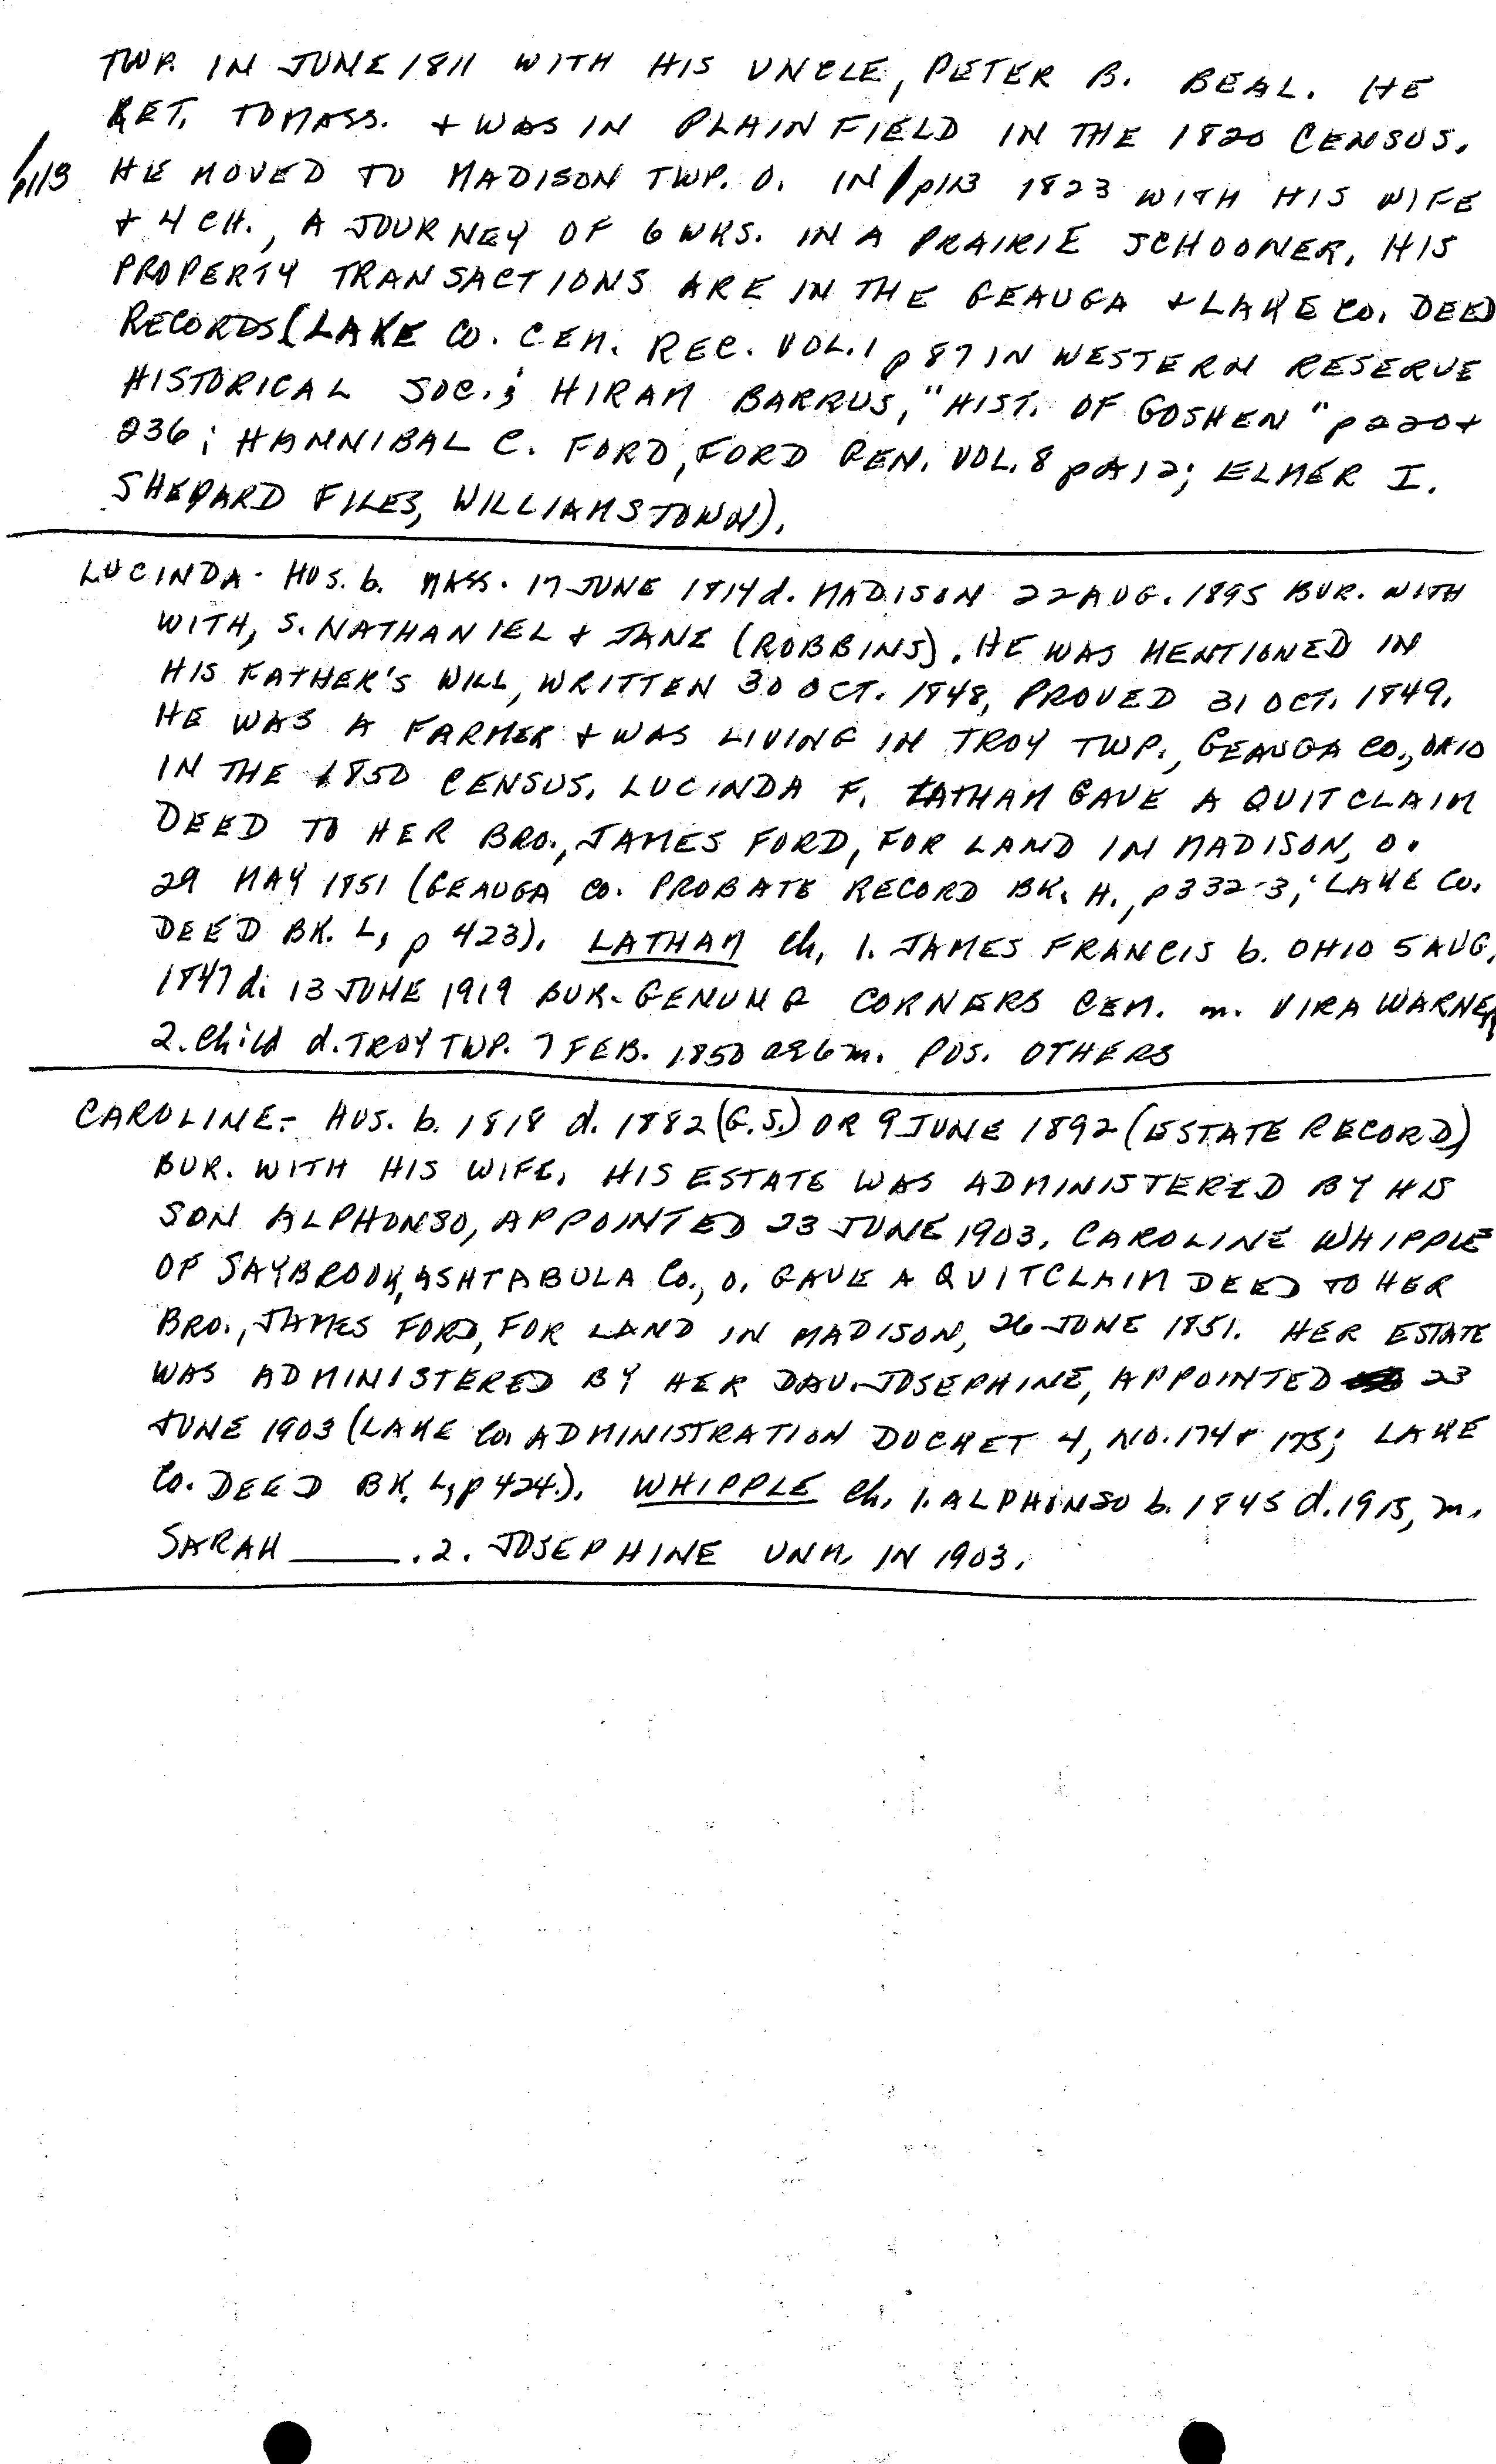 TWP. IN JUNE 1811 WITH HIS UNCLE, PETER B. BEAL. HE
RET. TO MASS. + WAS IN PLAINFIELD IN THE 1820 CENSUS.
p113 HE MOVED TO MADISON TWP. O. IN /p113 1823 WITH HIS WIFE
+ 4 CH., A JOURNEY OF 6 WKS. IN A PRAIRIE SCHOONER. HIS
PROPERTY TRANSACTIONS ARE IN THE GEAUGA + LAKE CO. DEED
RECORDS (LAKE CO. CEM. REC. VOL. 1 p 87 IN WESTERN RESERVE
HISTORICAL SOC.; HIRAM BARRUS, "HIST. OF GOSHEN" p 220 +
236; HANNIBAL C. FORD, FORD GEN. VOL. 8 p A12; ELMER I.
SHEPARD FILES, WILLIAMSTOWN).
LUCINDA - HUS. b. MASS. 17 JUNE 1814 d. MADISON 22 AUG. 1895 BUR. WITH
WITH, S. NATHANIEL + JANE (ROBBINS). HE WAS MENTIONED IN
HIS FATHER'S WILL, WRITTEN 30 OCT. 1848, PROVED 31 OCT. 1849.
HE WAS A FARMER + WAS LIVING IN TROY TWP., GEAUGA CO., OHIO
IN THE 1850 CENSUS. LUCINDA F. LATHAM GAVE A QUITCLAIM
DEED TO HER BRO., JAMES FORD, FOR LAND IN MADISON, O.
29 MAY 1851 (GEAUGA CO. PROBATE RECORD BK. H., p 332-3; LAKE CO.
DEED BK. L, p 423). LATHAM Ch. 1. JAMES FRANCIS b. OHIO 5 AUG.
1847 d. 13 JUNE 1919 BUR. GENUNG CORNERS CEM. m. VIRA WARNER
2. Child d. TROY TWP. 7 FEB. 1850 ae 6 m. POS. OTHERS
CAROLINE - HUS. b. 1818 d. 1882 (G.S.) OR 9 JUNE 1892 (ESTATE RECORD)
BUR. WITH HIS WIFE. HIS ESTATE WAS ADMINISTERED BY HIS
SON ALPHONSO, APPOINTED 23 JUNE 1903. CAROLINE WHIPPLE
OF SAYBROOK, ASHTABULA CO., O. GAVE A QUITCLAIM DEED TO HER
BRO., JAMES FORD, FOR LAND IN MADISON, 26 JUNE 1851. HER ESTATE
WAS ADMINISTERED BY HER DAU. JOSEPHINE, APPOINTED 23
JUNE 1903 (LAKE CO. ADMINISTRATION DOCKET 4, NO. 174 + 175; LAKE
CO. DEED BK. L, p 424.). WHIPPLE Ch. 1. ALPHONSO b. 1845 d. 1915, m.
SARAH ______. 2. JOSEPHINE UNM. IN 1903.